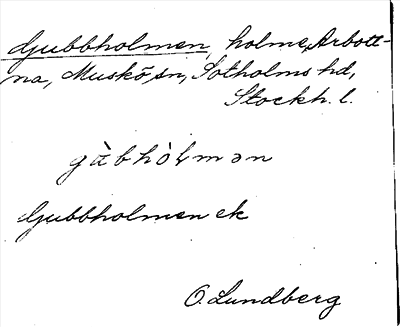 Gubbholmen, holme, Arbott-
na, Muskö sn, Sotholms hd,
Stockh. l.
gàbhòlmən
Gubbholmen ek
O. Lundberg